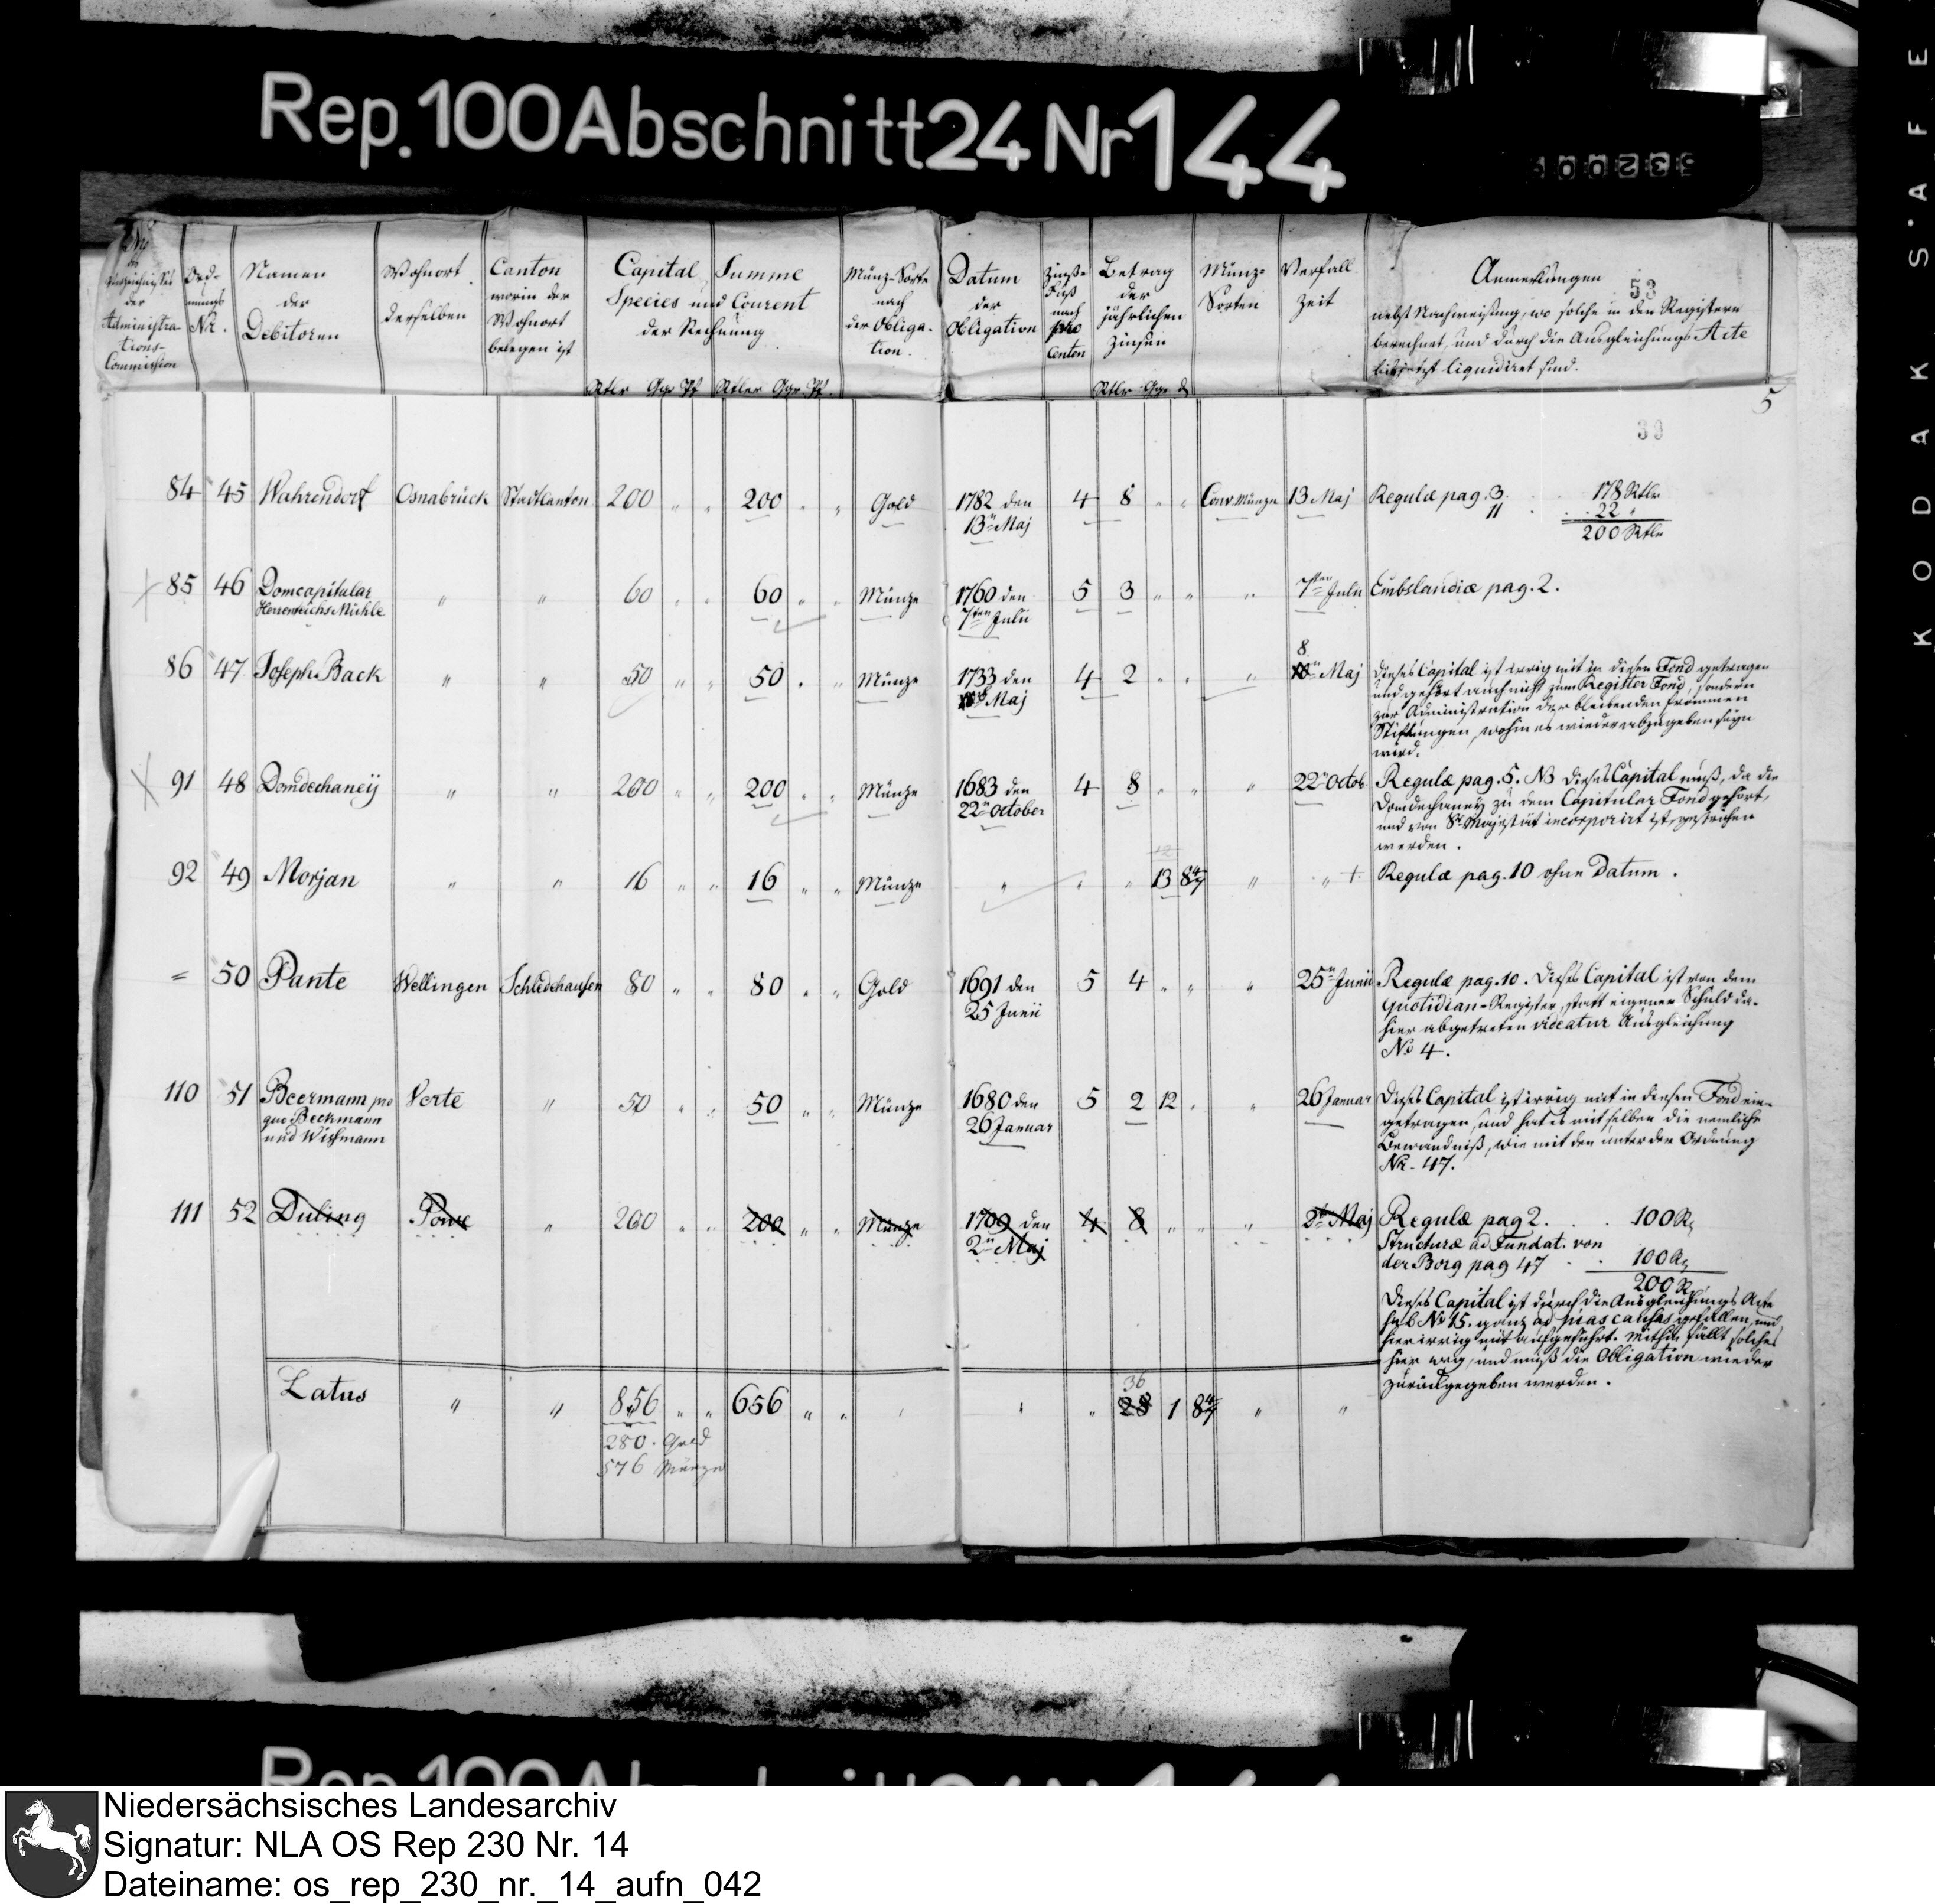 Rep. 100 Abschnitt 24 Nr 144
KODAK SAFE
53
39
5
Nr
Verzeichnisses
der
Administra-
tions-
Commission
Ord-
nungs
Nr.
Namen
der
Debitoren
Wohnort
derselben
Canton
worin der
Wohnort
belegen ist
Capital Summe
Species und Courent
der Rechnung
Rtlr Ggr Pf Rtler Ggr Pf.
Münz-Sorte
nach
der Obliga-
tion.
Datum
der
Obligation
Zinß-
Fuß
nach
pro
Centen
Betrag
der
jährlichen
Zinsen
Rtlr Ggr d
Münz-
Sorten
Verfall
Zeit
Anmerkungen
nebst Nachweisung, wo solche in den Registern
berechnet, und durch die Ausgleichungs Acte
liquidiret sind.
84 45 Wahrendorf Osnabrück Stadtcanton 200 " " 200 " " Gold 1782 den 4 8 " " Conv. Münze 13 Maj Regulæ pag. 3. 178 Rtlr
13n Maj 11 . . 22 "
200 Rtlr
85 46 Domcapitular " " 60 " " 60 " " Münze 1760 den 5 3 " " " 7ten Julii Embslandiæ pag. 2.
Herrenteichs Mühle 7ten Julii
8.
86 47 Joseph Back " " 50 " " 50 " " Münze 1733 den 4 2 " " " Maj Dieses Capital ist irrig mit in diesen Fond getragen
8 Maj und gehört auch nicht zum Register Fond, sondern
zur Administration der bleibenden frommen
Stiftungen, wohin es wieder abzugeben seyn
wird.
91 48 Domdechaneij " " 200 " " 200 " " Münze 1683 den 4 8 " " " 22n Octob. Regulæ pag. 5. NB dieses Capital muß, da die
22n October Domdechaney zu dem Capitular Fond gehört,
und von Sr Majestät incorporirt ist, gestrichen
werden.
12
92 49 Morjan " " 16 " " 16 " " Münze " " " 13 8 4/7 " " + Regulæ pag. 10 ohne Datum.
= 50 Pante Wellingen Schledehausen 80 " " 80 " " Gold 1691 den 5 4 " " " 25n Junii Regulæ pag. 10. Dieses Capital ist von dem
25 Junii Quotidian-Register, statt eigener Schuld da-
hier abgetreten videatur Ausgleichung
No 4.
110 51 Beermann pro Verte " 50 " " 50 " " Münze 1680 den 5 2 12 " " 26 Januar Dieses Capital ist irrig mit in diesen Fond ein-
quo Beckmann 26 Januar getragen, und hat es mit selben die nemliche
und Wißmann Bewandniß, wie mit den unter der Ordnung
Nr. 47.
111 52 Duling Powe " 200 " " 200 " " Münze 1709 den 4 8 " " " 2n Maj Regulæ pag 2. . . 100 Rt
2n Maj Structuræ ad Fundat. von
der Borg pag 47 . . 100 Rt
200 Rt
Dieses Capital ist durch die Ausgleichungs Acte
sub No 15. ganz ad pias causas gefallen, und
hier irrig mit aufgeführt. Mithin fällt solches
hier weg, und muß die Obligation wieder
zurückgegeben werden.
36
Latus " " 856 " " 656 " " " " " 28 1 8 4/7 " "
280. Gold
576 Münze
Niedersächsisches Landesarchiv
Signatur: NLA OS Rep 230 Nr. 14
Dateiname: os_rep_230_nr._14_aufn_042